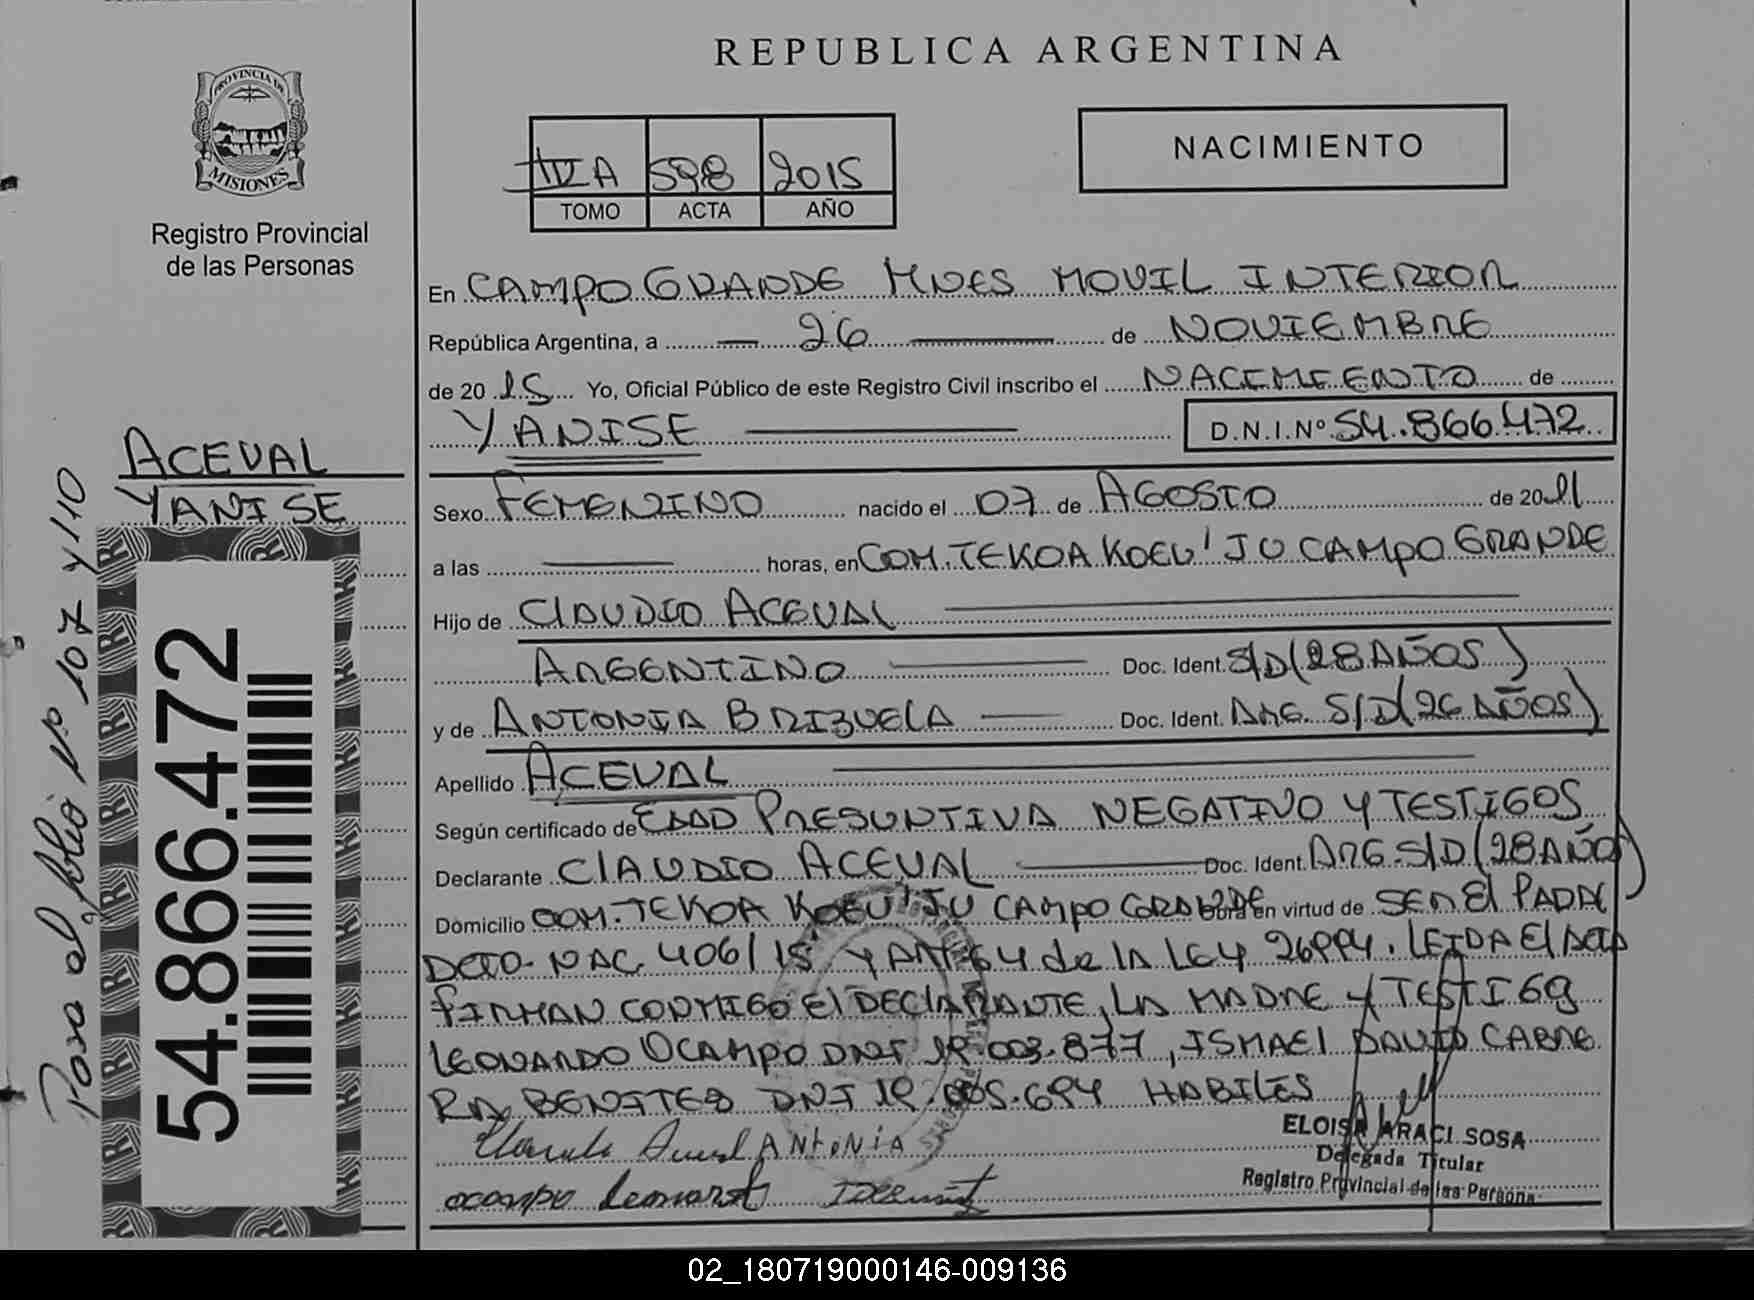 REPUBLICA ARGENTINA
PROVINCIA DE
MISIONES
Registro Provincial
de las Personas
NACIMIENTO
598 2015
TOMO ACTA AÑO
En CAMPO GRANDE MNES MOVIL INTERIOR
República Argentina, a 26 de NOVIEMBRE
de 2015 Yo, Oficial Público de este Registro Civil inscribo el NACIMIENTO de
YANISE D.N.I.Nº 54.866.472
ACEVAL
YANISE
Pasa al folio Nº 107 y 110
54.866.472
Sexo FEMENINO nacido el 07 de AGOSTO de 2011
a las horas, en COM. TEKOA KOEU'JU CAMPO GRANDE
Hijo de CLAUDIO ACEVAL
ARGENTINO Doc. Ident. S/D (28 AÑOS)
y de ANTONIA BRIZUELA Doc. Ident. ARG. S/D (26 AÑOS)
Apellido ACEVAL
Según certificado de EDAD PRESUNTIVA NEGATIVO Y TESTIGOS
Declarante CLAUDIO ACEVAL Doc. Ident. ARG. S/D (28 AÑOS)
Domicilio COM. TEKOA KOEU'JU CAMPO GRANDE Obra en virtud de SER El PADRE
DCTO. NAC. 406/15 Y ART. 64 de la LEY 26994. LEIDA El ACTA
FIRMAN CONMIGO El DECLARANTE, LA MADRE Y TESTIGO
LEONARDO OCAMPO DNI 19.003.877, ISMAEL DAVID CABRE
RA BENITES DNI 19.005.694 HABILES
ANTONIA
ocampo Leonardo
ELOISA ARACI SOSA
Delegada Titular
Registro Provincial de las Persona
02_180719000146-009136